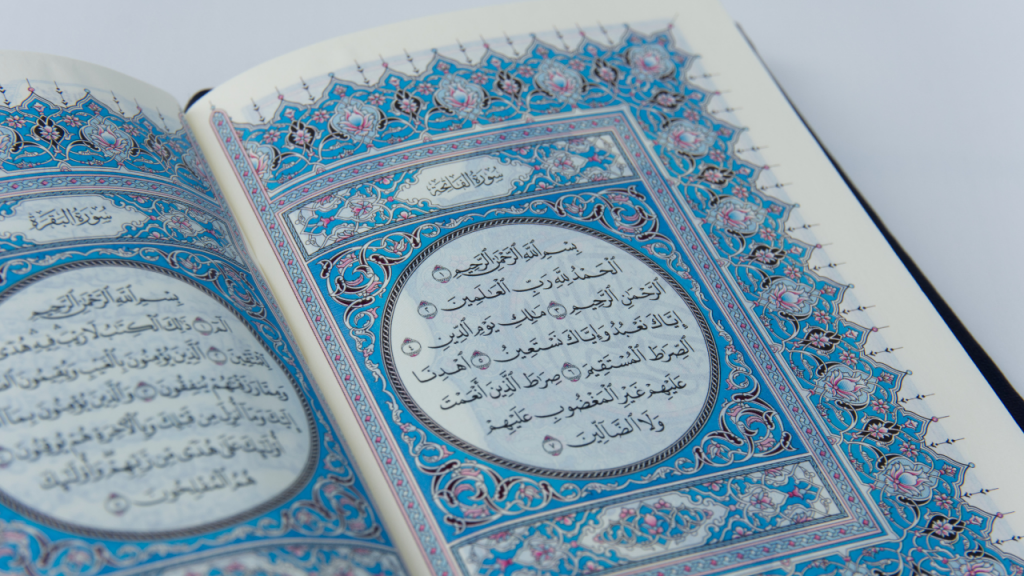 سُورَةُ ٱلْفَاتِحَةِ
بِسْمِ ٱللَّهِ ٱلرَّحْمَٰنِ ٱلرَّحِيمِ ١
ٱلْحَمْدُ لِلَّهِ رَبِّ ٱلْعَٰلَمِينَ ٢
ٱلرَّحْمَٰنِ ٱلرَّحِيمِ ٣ مَٰلِكِ يَوْمِ ٱلدِّينِ ٤
إِيَّاكَ نَعْبُدُ وَإِيَّاكَ نَسْتَعِينُ ٥ ٱهْدِنَا
ٱلصِّرَٰطَ ٱلْمُسْتَقِيمَ ٦ صِرَٰطَ ٱلَّذِينَ أَنْعَمْتَ
عَلَيْهِمْ غَيْرِ ٱلْمَغْضُوبِ عَلَيْهِمْ
وَلَا ٱلضَّآلِّينَ ٧
سُورَةُ ٱلْبَقَرَةِ
بِسْمِ ٱللَّهِ ٱلرَّحْمَٰنِ ٱلرَّحِيمِ
الٓمٓ ١ ذَٰلِكَ ٱلْكِتَٰبُ لَا رَيْبَ فِيهِ هُدًى
لِّلْمُتَّقِينَ ٢ ٱلَّذِينَ يُؤْمِنُونَ بِٱلْغَيْبِ وَيُقِيمُونَ
وَمِمَّا رَزَقْنَٰهُمْ يُنفِقُونَ ٣ وَٱلَّذِينَ يُؤْمِنُونَ بِمَآ
إِلَيْكَ وَمَآ أُنزِلَ مِن قَبْلِكَ وَبِٱلْءَاخِرَةِ هُمْ يُوقِنُونَ ٤
أُو۟لَٰٓئِكَ عَلَىٰ هُدًى مِّن رَّبِّهِمْ وَأُو۟لَٰٓئِكَ
هُمُ ٱلْمُفْلِحُونَ ٥